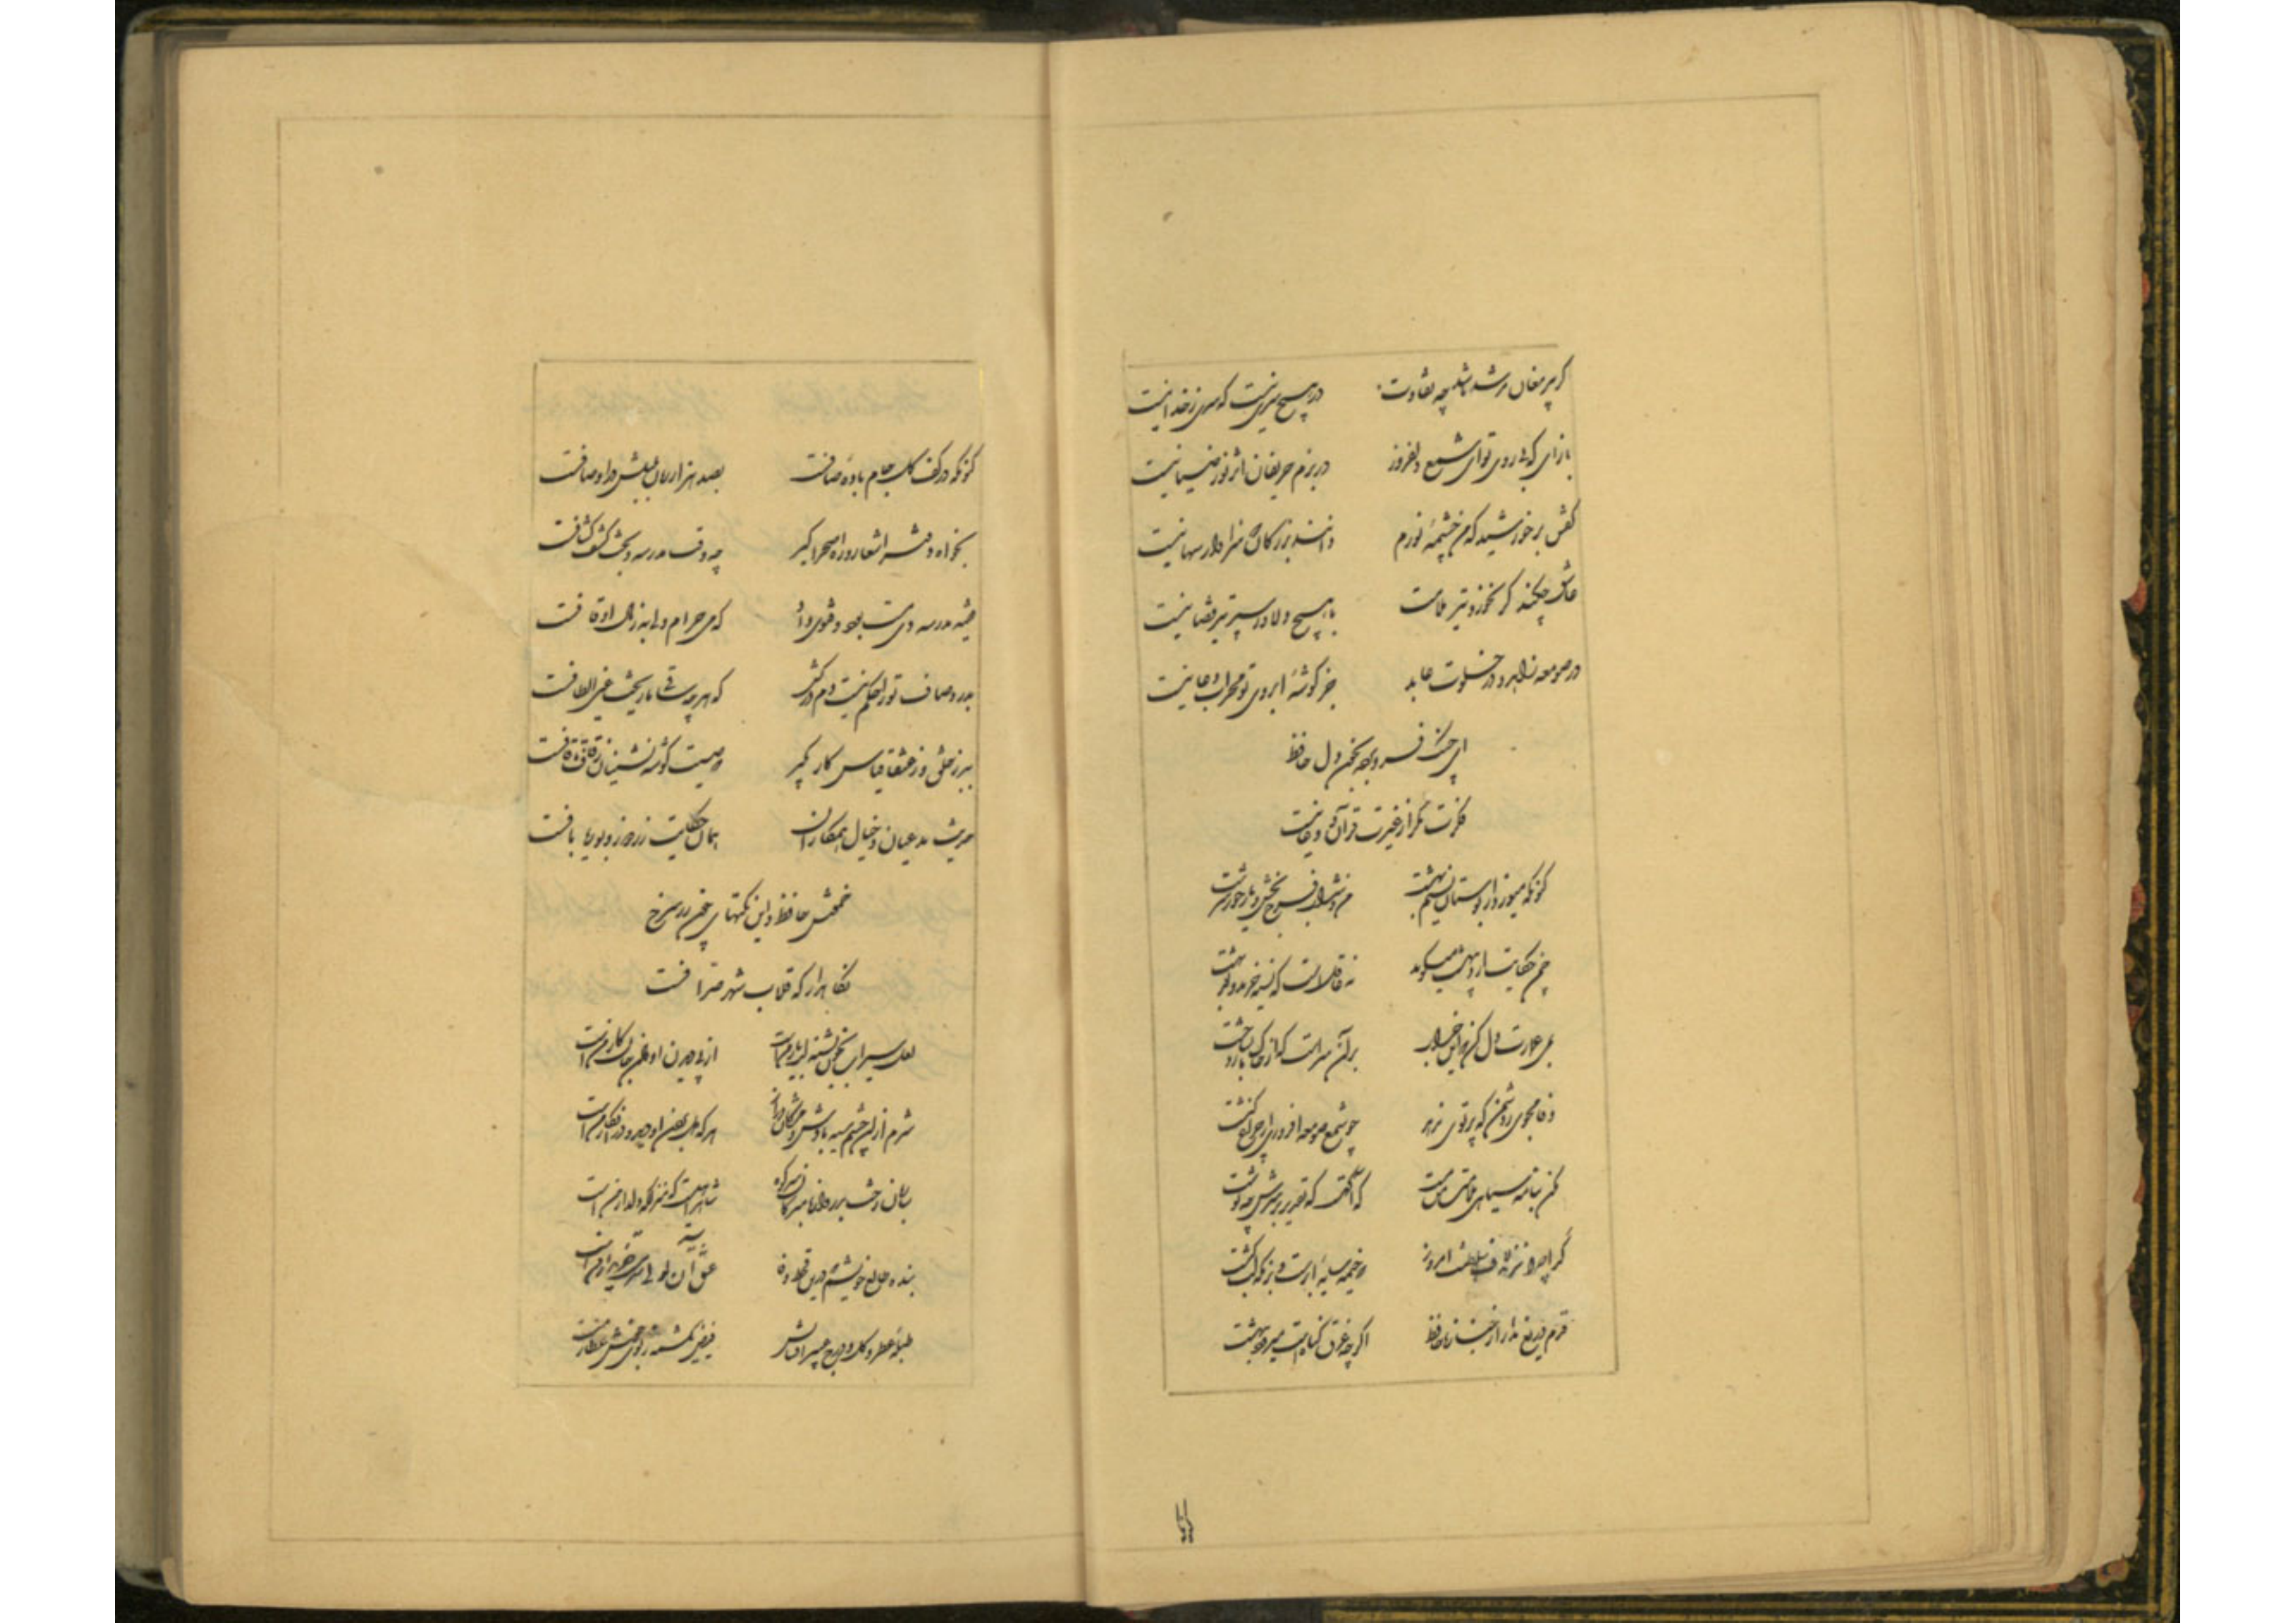 گر پیر مغان مرشد ما شد چه تفاوت در هیچ سری نیست که سری ز خدا نیست
بازآی که بی روی تو ای شمع دلفروز در بزم حریفان اثر نور و ضیا نیست
گفتن بر خورشید که من چشمه نورم دانند بزرگان که سزاوار سها نیست
عاشق چکند گر نخورد تیر ملامت با هیچ دلاور سپر تیر قضا نیست
در صومعه زاهد و در خلوت عابد جز گوشه ابروی تو محراب دعا نیست
ای چنگ فرو برده بخون دل حافظ
فکرت مگر از غیرت قرآن و خدا نیست
کنونکه میوزد از بوستان نسیم بهشت من و شراب فرح بخش و یار حور سرشت
چمن حکایت اردیبهشت میگوید نه عاقلست که نسیه خرید و نقد بهشت
بمی عمارت دل کن که این جهان خراب بر آن سرست که از خاک ما بسازد خشت
وفا مجوی ز دشمن که پرتوی ندهد چو شمع صومعه افروزی از چراغ کنشت
مکن بنامه سیاهی ملامت من مست که آگهست که تقدیر بر سرش چه نوشت
گدا چرا نزند لاف سلطنت امروز که خیمه سایه ابرست و بزمگه لب کشت
قدم دریغ مدار از جنازه حافظ اگرچه غرق گناهست میرود بهشت
کنونکه در کف گل جام باده صافست بصد هزار زبان بلبلش در اوصافست
بخواه دفتر اشعار و راه صحرا گیر چه وقت مدرسه و بحث کشف کشافست
فقیه مدرسه دی مست بود و فتوی داد که می حرام ولی به ز مال اوقافست
بدرد و صاف ترا حکم نیست دم درکش که هر چه ساقی ما ریخت عین الطافست
ببر ز خلق و ز عنقا قیاس کار بگیر که صیت گوشه نشینان ز قاف تا قافست
حدیث مدعیان و خیال همکاران همان حکایت زردوز و بوریا بافست
خمش حافظ و این نکتهای چون زر سرخ
نگاهدار که قلاب شهر صرافست
لعل سیراب بخون تشنه لب یار منست از پی دیدن او دادن جان کار منست
شرم از آن چشم سیه بادش و مژگان دراز هر که دل بردن او دید و در انکار منست
ساربان رخت بدروازه مبر کان سر کو شاهراهیست که منزلگه دلدار منست
بنده طالع خویشم که درین قحط وفا عشق آن لولی سرمست خریدار منست
طبله عطر گل و درج عبیر افشانش فیض یک شمه ز بوی خوش عطار منست